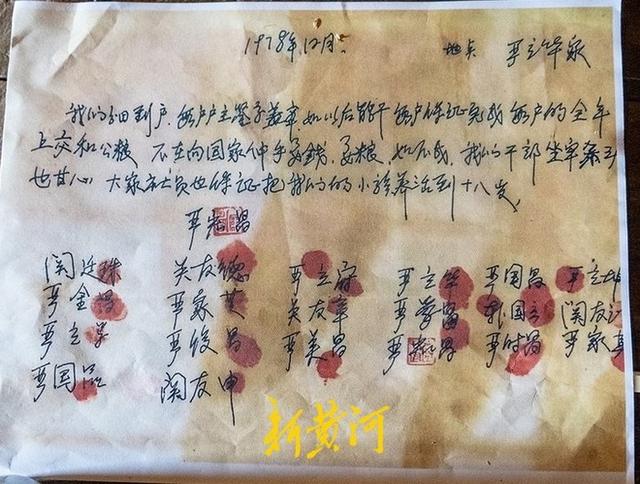 1978年12月. 地点 严立华家
我们分田到户,每户户主签字盖章,如以后能干每户保证完成每户的全年
上交和公粮 不在向国家伸手要钱、要粮,如不成,我们干部坐牢杀头
也甘心 大家社员也保证把我们的小孩养活到十八岁。
严宏昌
关廷珠 关友德 严立符 严立华 严国昌 严立坤
严金昌 严家芝 关友章 严学昌 韩国云 关友江
严立学 严俊昌 严美昌 严宏昌 严付昌 严家其
严国品 关友申
新黄河